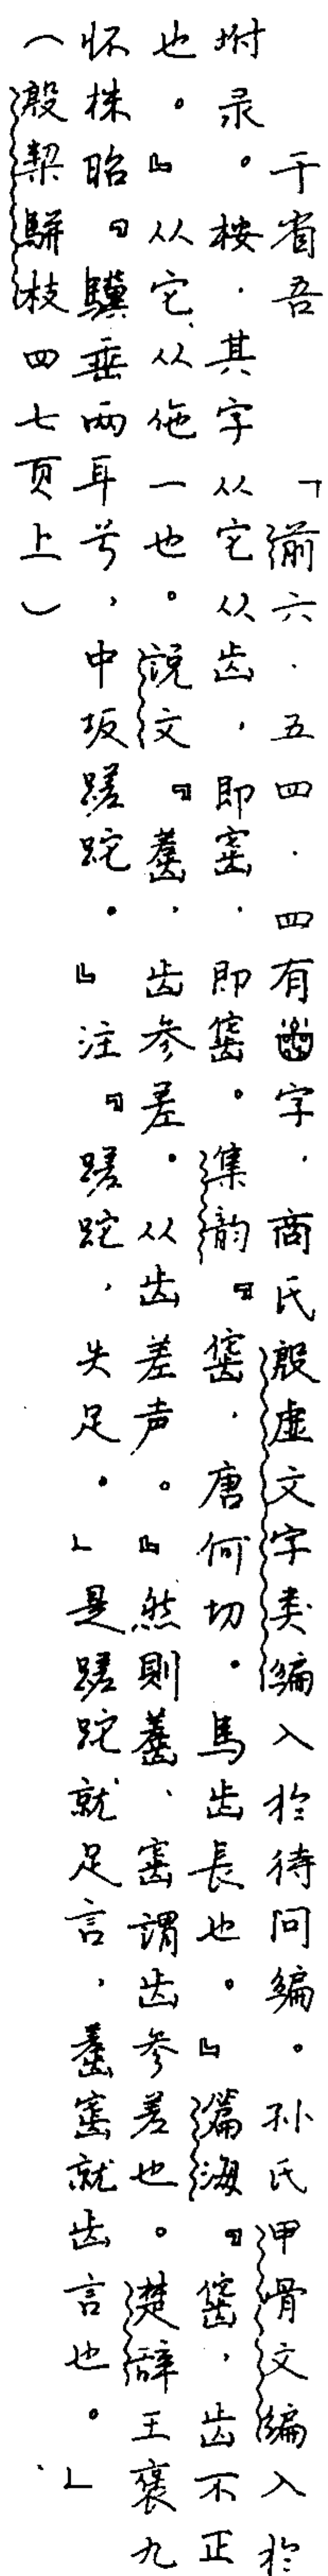 于省吾「前六．五四．四有字．商氏殷虚文字类编入於待问编。孙氏甲骨文编入於
附录。桉．其字从它从齿，即䶔．即䶔。集韵『䶔．唐何切．馬齿長也。』篇海『䶔，齿不正
也。』从它从佗一也。说文『齹．齿参差．从齿差声。』然則齹、䶔謂齿参差也。楚辞王褒九
怀株昭『驥垂两耳兮，中坂蹉跎．』注『蹉跎，失足．」是蹉跎就足言，齹䶔就齿言也。」
（殷契駢枝四七页上）